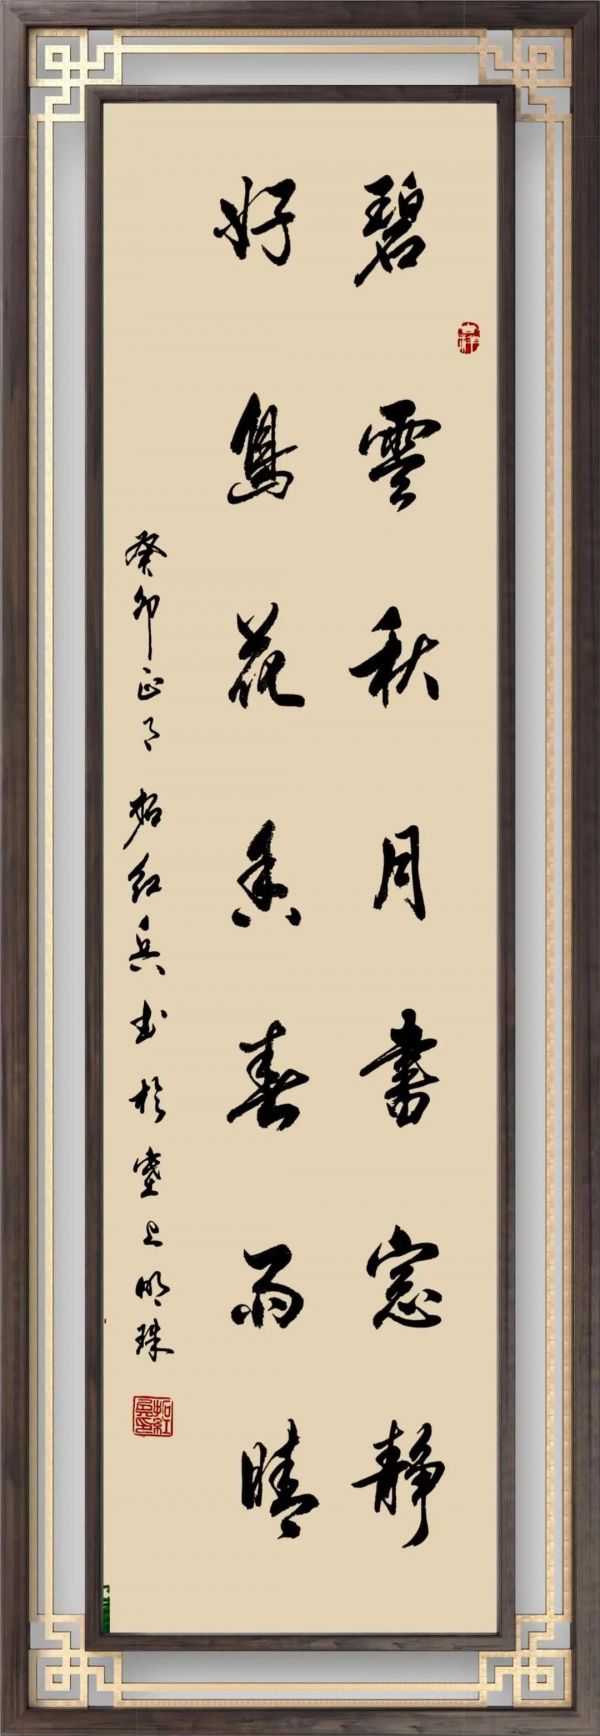 碧雲秋月書窓静
好鳥花香春雨晴
癸卯正月柘红兵书於塞上明珠